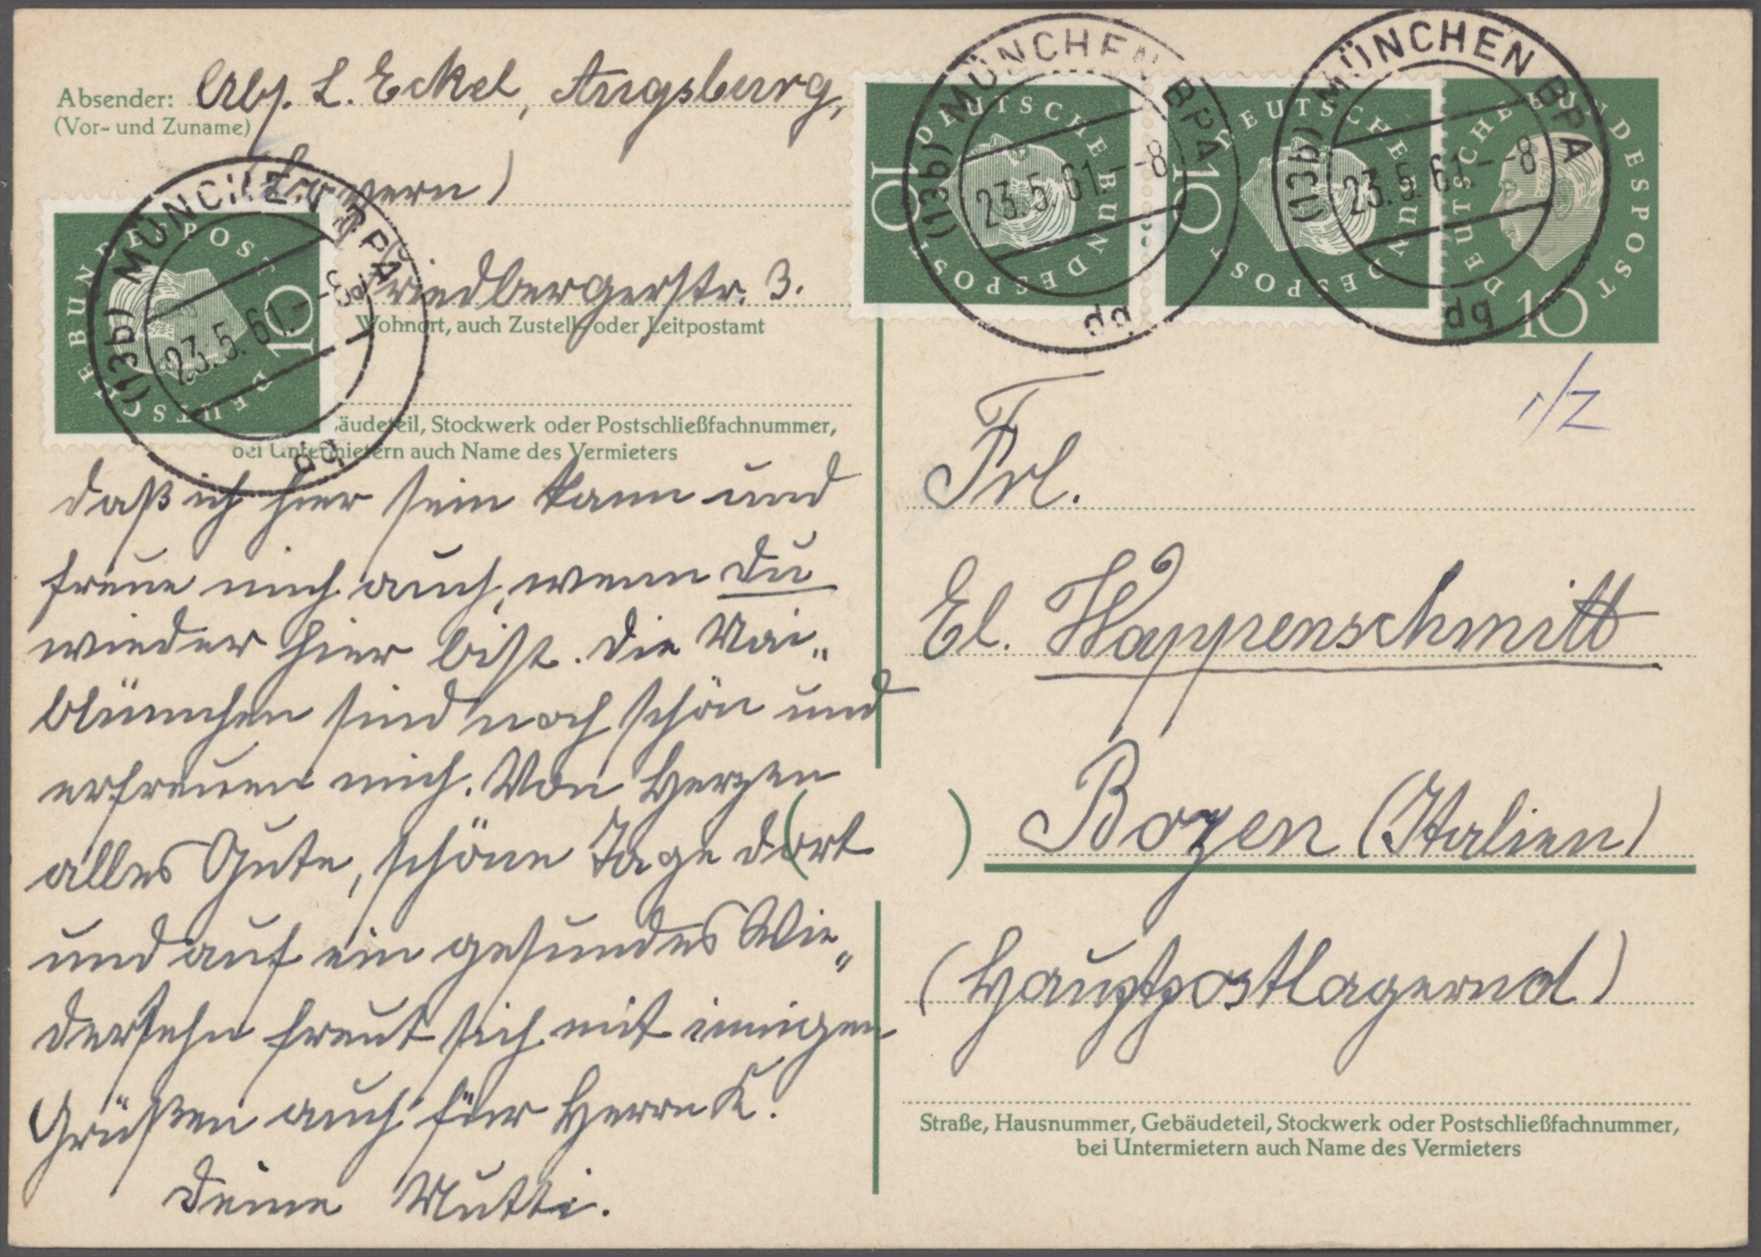 Absender: Abs. L. Eckel, Augsburg,
(Vor- und Zuname)
(Bayern)
Friedbergerstr. 3.
Wohnort, auch Zustell- oder Leitpostamt
äudeteil, Stockwerk oder Postschließfachnummer,
bei Untermietern auch Name des Vermieters
daß ich hier sein kann und
freue mich auch, wenn Du
wieder hier bist. Die Mai-
blümchen sind noch schön und
erfreuen mich. Von Herzen
alles Gute, schöne Tage dort
und auf ein gesundes Wie-
dersehn freut sich mit innigen
Grüßen auch für Herrn K.
Deine Mutti.
DEUTSCHE BUNDESPOST
10
(13b) MÜNCHEN BPA
23.5.61.--8
bp
DEUTSCHE BUNDESPOST
10
(13b) MÜNCHEN BPA
23.5.61.--8
bp
DEUTSCHE BUNDESPOST
10
(13b) MÜNCHEN BPA
23.5.61.--8
bp
DEUTSCHE BUNDESPOST
10
Frl.
El. Wappenschmitt
Bozen (Italien)
(Hauptpostlagernd)
Straße, Hausnummer, Gebäudeteil, Stockwerk oder Postschließfachnummer,
bei Untermietern auch Name des Vermieters